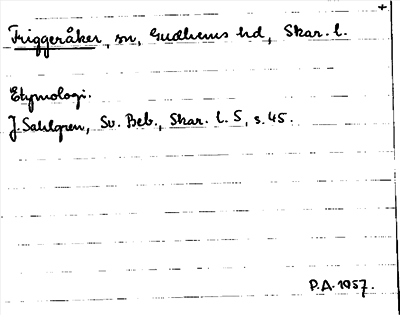 +
Friggeråker, sn, Gudhems hd, Skar. l.
Etymologi.
J. Sahlgren, Sv. Beb., Skar. l. 5, s. 45.
P.A. 1957.